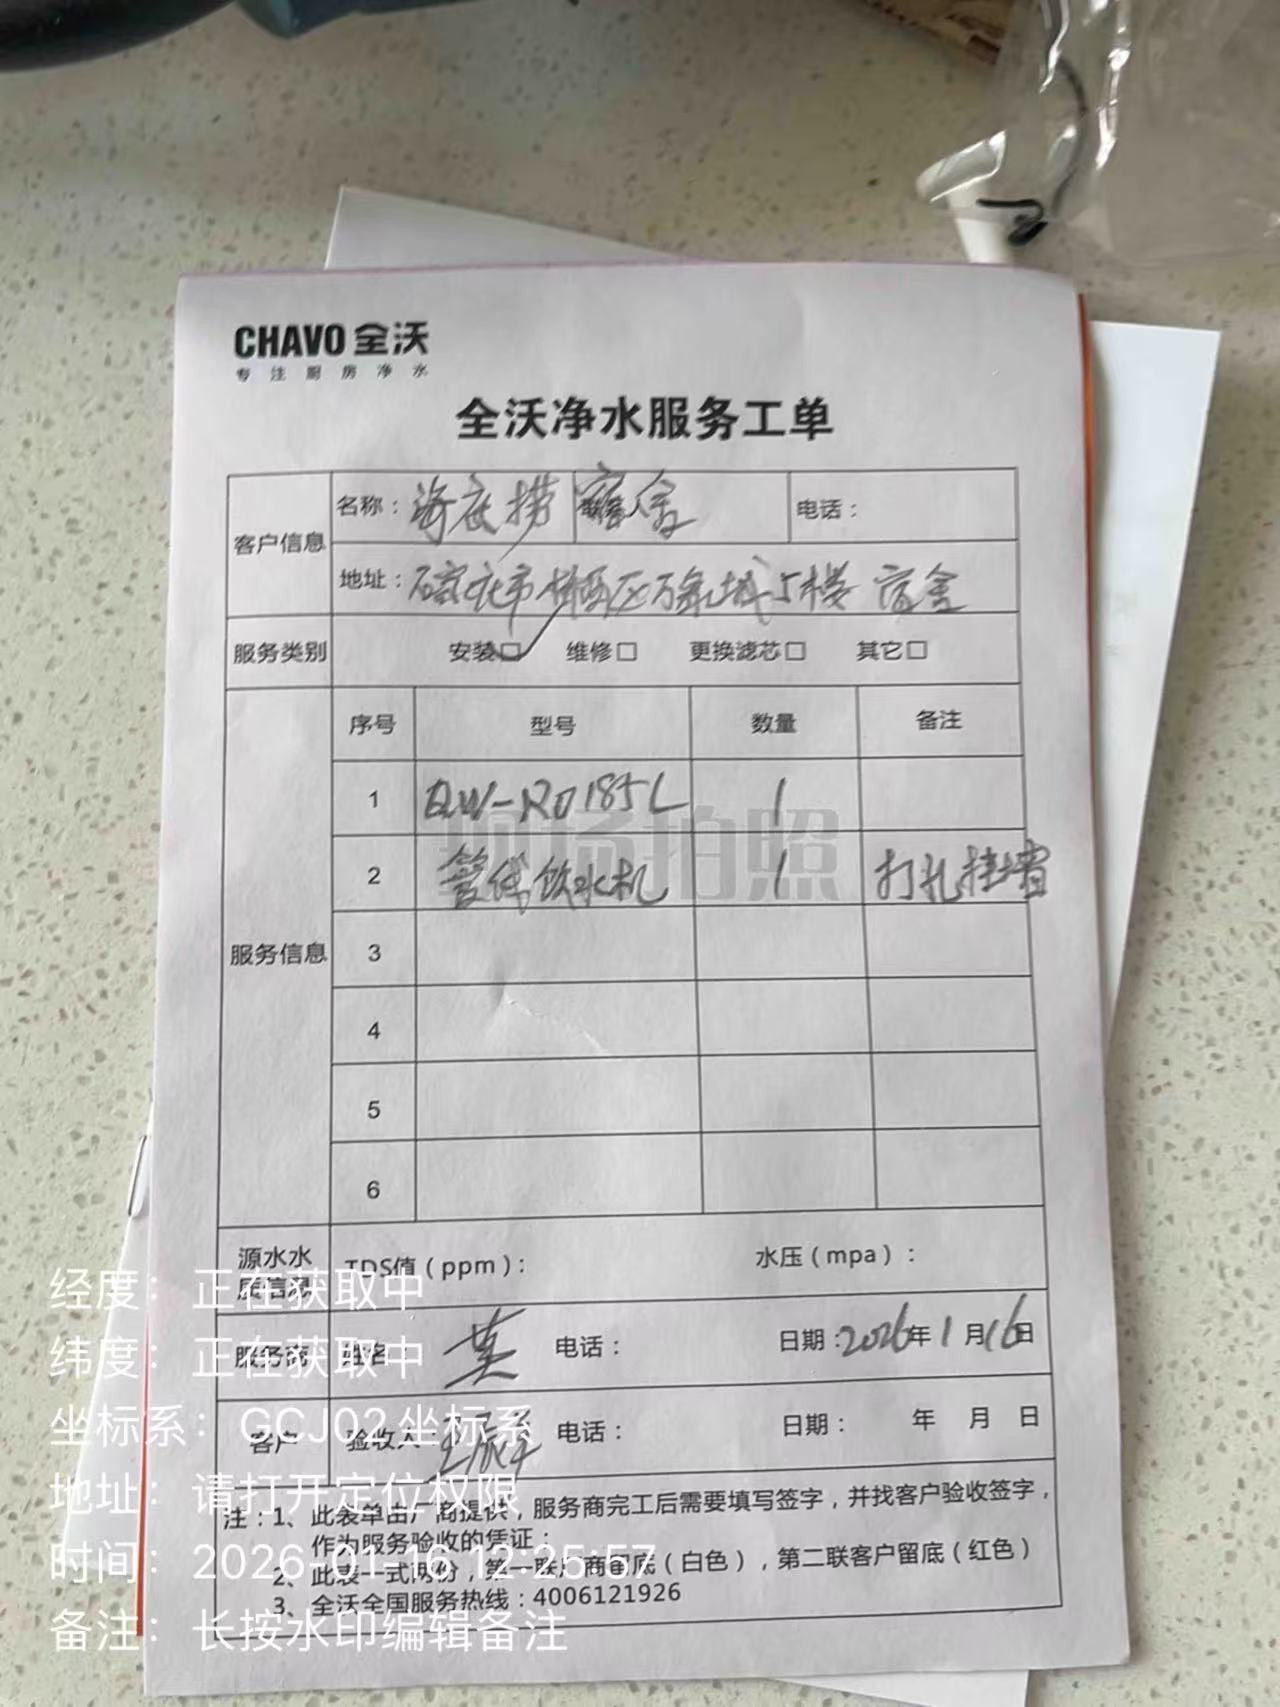 CHAVO 全沃
专注厨房净水
全沃净水服务工单
客户信息 名称：海底捞宿舍 电话：
地址：石家庄市桥西区万象城5楼 宿舍
服务类别 安装☑ 维修□ 更换滤芯□ 其它□
服务信息 序号 型号 数量 备注
1 QW-RO185L 1
现场拍照
2 管线饮水机 1 打孔挂墙
3
4
5
6
源水水质信息 TDS值（ppm）： 水压（mpa）：
服务商 姓名 电话： 日期：2026年1月16日
客户 验收人 电话： 日期： 年 月 日
注：1、此表单由厂商提供，服务商完工后需要填写签字，并找客户验收签字，
作为服务验收的凭证；
2、此表一式两份，第一联厂商留底（白色），第二联客户留底（红色）
3、全沃全国服务热线：4006121926
经度：正在获取中
纬度：正在获取中
坐标系：GCJ02坐标系
地址：请打开定位权限
时间：2026-01-16 12:25:57
备注：长按水印编辑备注